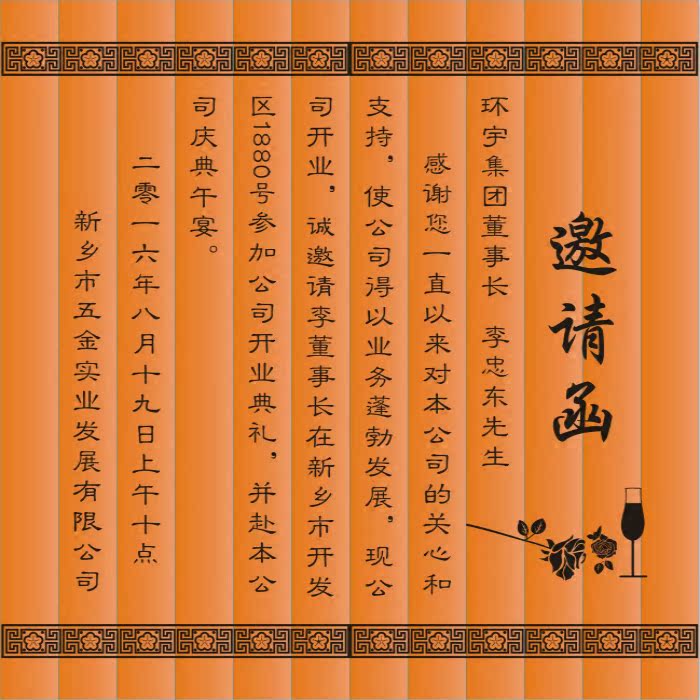 邀请函
环宇集团董事长 李忠东先生
感谢您一直以来对本公司的关心和
支持，使公司得以业务蓬勃发展，现公
司开业，诚邀请李董事长在新乡市开发
区1880号参加公司开业典礼，并赴本公
司庆典午宴。
二零一六年八月十九日上午十点
新乡市五金实业发展有限公司